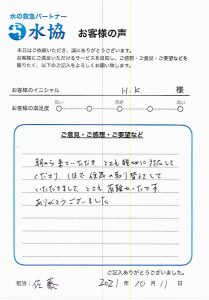 水の救急パートナー
水協 お客様の声
本日はご依頼いただき、誠にありがとうございます。
お客様にご満足いただけるサービスを目指し、ご感想・ご意見・ご要望などを
賜りたく、以下のご記入をよろしくお願い致します。
お客様のイニシャル H.K 様
お客様の満足度 低い 普通 高い
ご意見・ご感想・ご要望など
朝から来ていただき とても親切に対応して
くださり、1日で 取り替えして
いただきまして とても 有難かったです。
ありがとうございました
ご記入ありがとうございました。
担当 佐藤 2021年10月11日